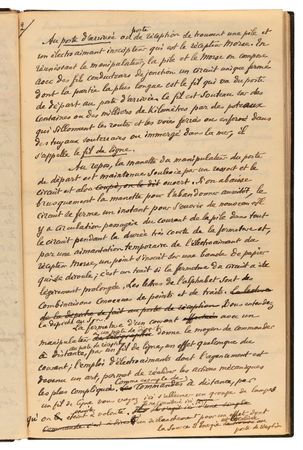 poste
Au poste d'arrivée ou de réception se trouvent une pile et
un électroaimant inscripteur qui est le récepteur Morse. En
réunissant le manipulateur, la pile et le Morse on compose
avec des fils conducteurs de jonction un circuit unique fermé
dont la partie la plus longue est le fil qui va du poste
de départ au poste d'arrivée. Ce fil est soutenu sur des
centaines ou des milliers de kilomètres par des poteaux
qui sillonnent les routes et les voies ferrées ou enfermé dans
des tuyaux souterrains ou immergé dans la mer, il
s'appelle le fil de ligne.
Au repos, la manette du manipulateur du poste
de départ est maintenue soulevée par un ressort et le
circuit est alors coupé, on le dit ouvert. Si on abaisse
brusquement la manette pour l'abandonner aussitôt, le
circuit se ferme un instant pour s'ouvrir de nouveau et il
y a circulation passagère du courant de la pile dans tout
le circuit pendant la durée très courte de la fermeture et,
par une aimantation temporaire de l'électroaimant du
récepteur Morse, un point s'inscrit sur une bande de papier
qui se déroule; c'est un trait si la fermeture du circuit a été
légèrement prolongée. Les lettres de l'alphabet sont des
combinaisons convenues de points et de traits. La lecture
de la dépêche se fait au poste de réception.
La fermeture d'un courant avec un
manipulateur donne le moyen de commander
à distance, par un fil de ligne, un effet quelconque du
courant; l'emploi d'électroaimants dont l'agencement est
devenu un art, permet de réaliser les actions mécaniques
les plus compliquées. Commander à distance, par
un fil de ligne, un groupe de lampes
qui on à volonté,
pour un effet dont
la source d'énergie
poste de réception